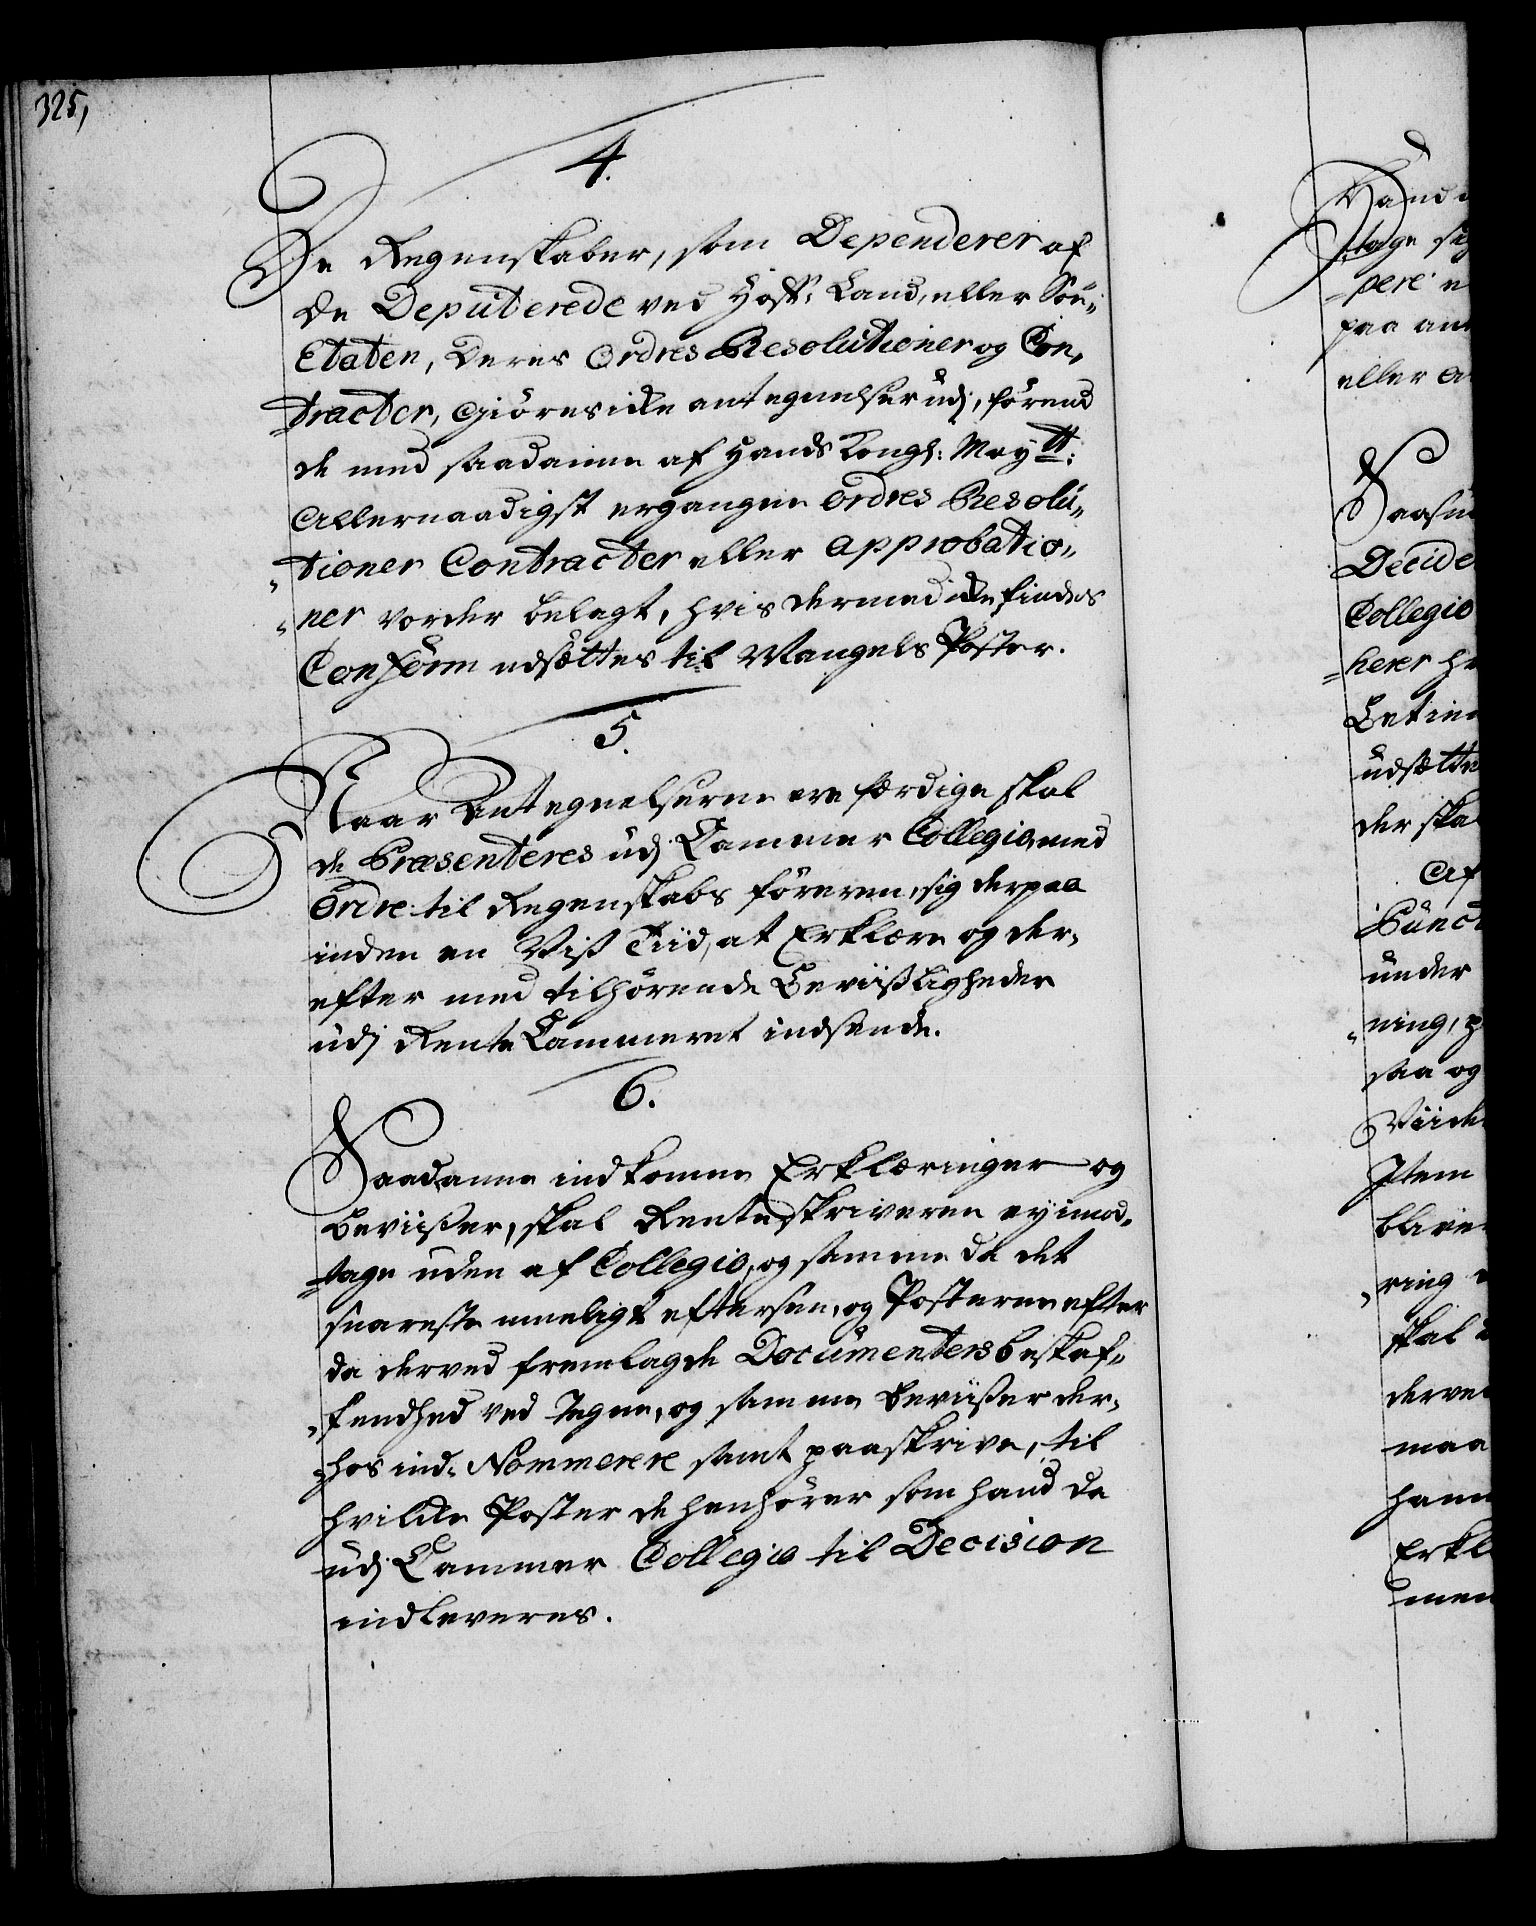 325,
4.
De Regenskaber, som Dependerer af
de Deputerede ved Hoff: Land, eller Söe-
Etaten, Deres Ordres Resolutioner og Con,
tracter, giöres icke antegnelser udj, förend
de med saadanne af Hands Kongl: Maytt:
Allernaadigst ergangne Ordres Resolu,
tioner Contracter eller approbatio,
ner vorder belagt, hvis dermed icke findes
Conform udsættes til Mangels Poster.
5.
Naar Antegnelserne ere færdige skal
de Præsenteres udj Cammer Collegio, med
Ordre til Regenskabs föreren, sig derpaa
inden en Viß Tiid, at Erklære og der,
efter med tilhörende Beviißligheder
udj Rente Cammeret indsende.
6.
Saadanne indkomne Erklæringer og
Beviißer, skal Renteskriveren ey imod,
tage uden af Collegio, og samme da det
snareste mueligt eftersee, og Posterne efter
da derved fremlagde Documenters beskaf,
fendhed ved Tegne, og samme Beviißer der,
hos ind Nommerere samt paaskrive, til
hvilcke Poster de henhörer som hand da
udj Cammer Collegio til Decision
indleveres.
Hand
tage sig
pere
paa
eller
Saasn
Decide
Collegio
herer
Betien
udsætte
der skal
Af
Punct
under
ning,
saa og
Viide
Item
blive
ring
skal
derved
maa
hann
Erkl
men